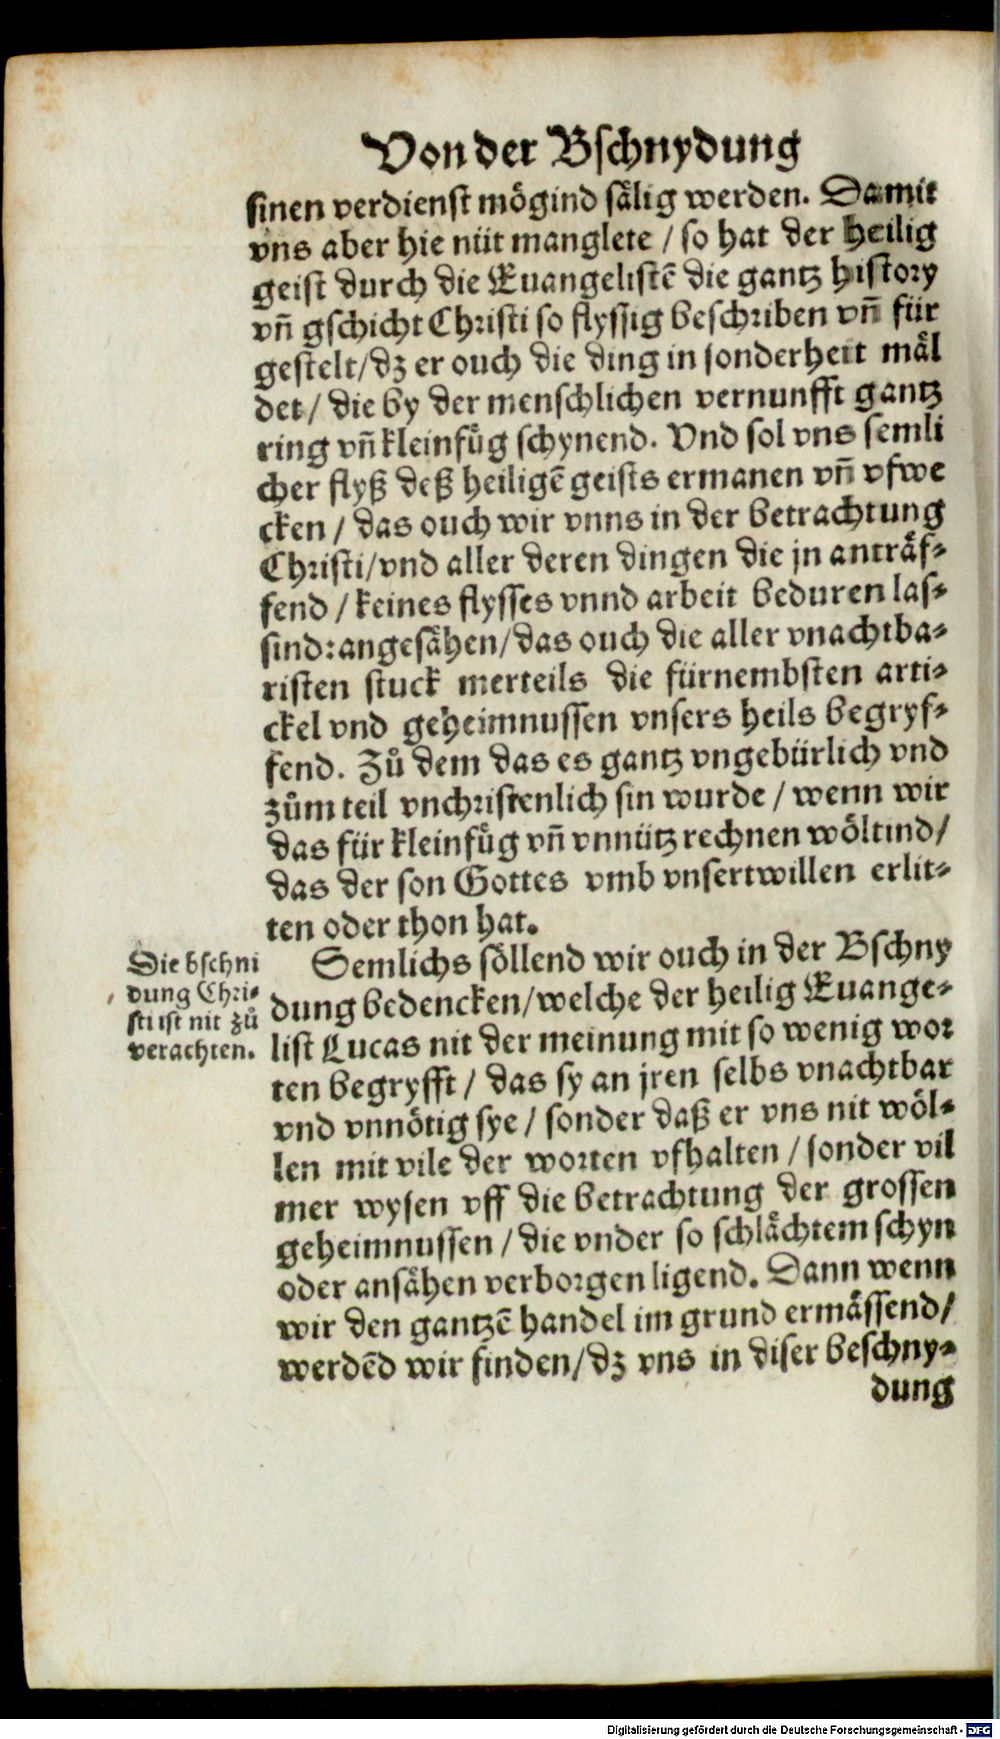 Von der Bschnydung
sinen verdienst mögind sälig werden. Damit
vns aber hie nüt manglete / so hat der heilig
geist durch die Euangelistē die gantz history
vñ gschicht Christi so flyssig beschriben vñ für
gestelt/dz er ouch die ding in sonderheit mål
det / die by der menschlichen vernunfft gantz
ring vñ kleinfůg schynend. Vnd sol vns semli
cher flyß deß heiligē geists ermanen vñ vfwe
cken / das ouch wir vnns in der betrachtung
Christi/vnd aller deren dingen die jn anträf⸗
fend / keines flysses vnnd arbeit beduren las⸗
sind: angesähen/das ouch die aller vnachtba⸗
risten stuck merteils die fürnembsten arti⸗
ckel vnd geheimnussen vnsers heils begryf⸗
fend. Zů dem das es gantz vngebürlich vnd
zům teil vnchristenlich sin wurde / wenn wir
das für kleinfůg vñ vnnütz rechnen wöltind/
das der son Gottes vmb vnsertwillen erlit⸗
ten oder thon hat.
Die bschni
dung Chri⸗
sti ist nit zů
verachten.
Semlichs söllend wir ouch in der Bschny
dung bedencken/welche der heilig Euange⸗
list Lucas nit der meinung mit so wenig wor
ten begryfft / das sy an jren selbs vnachtbar
vnd vnnötig sye / sonder daß er vns nit wöl⸗
len mit vile der worten vfhalten / sonder vil
mer wysen vff die betrachtung der grossen
geheimnussen / die vnder so schlächtem schyn
oder ansähen verborgen ligend. Dann wenn
wir den gantzē handel im grund ermässend/
werdēd wir finden/dz vns in diser beschny⸗
dung
Digitalisierung gefördert durch die Deutsche Forschungsgemeinschaft - DFG